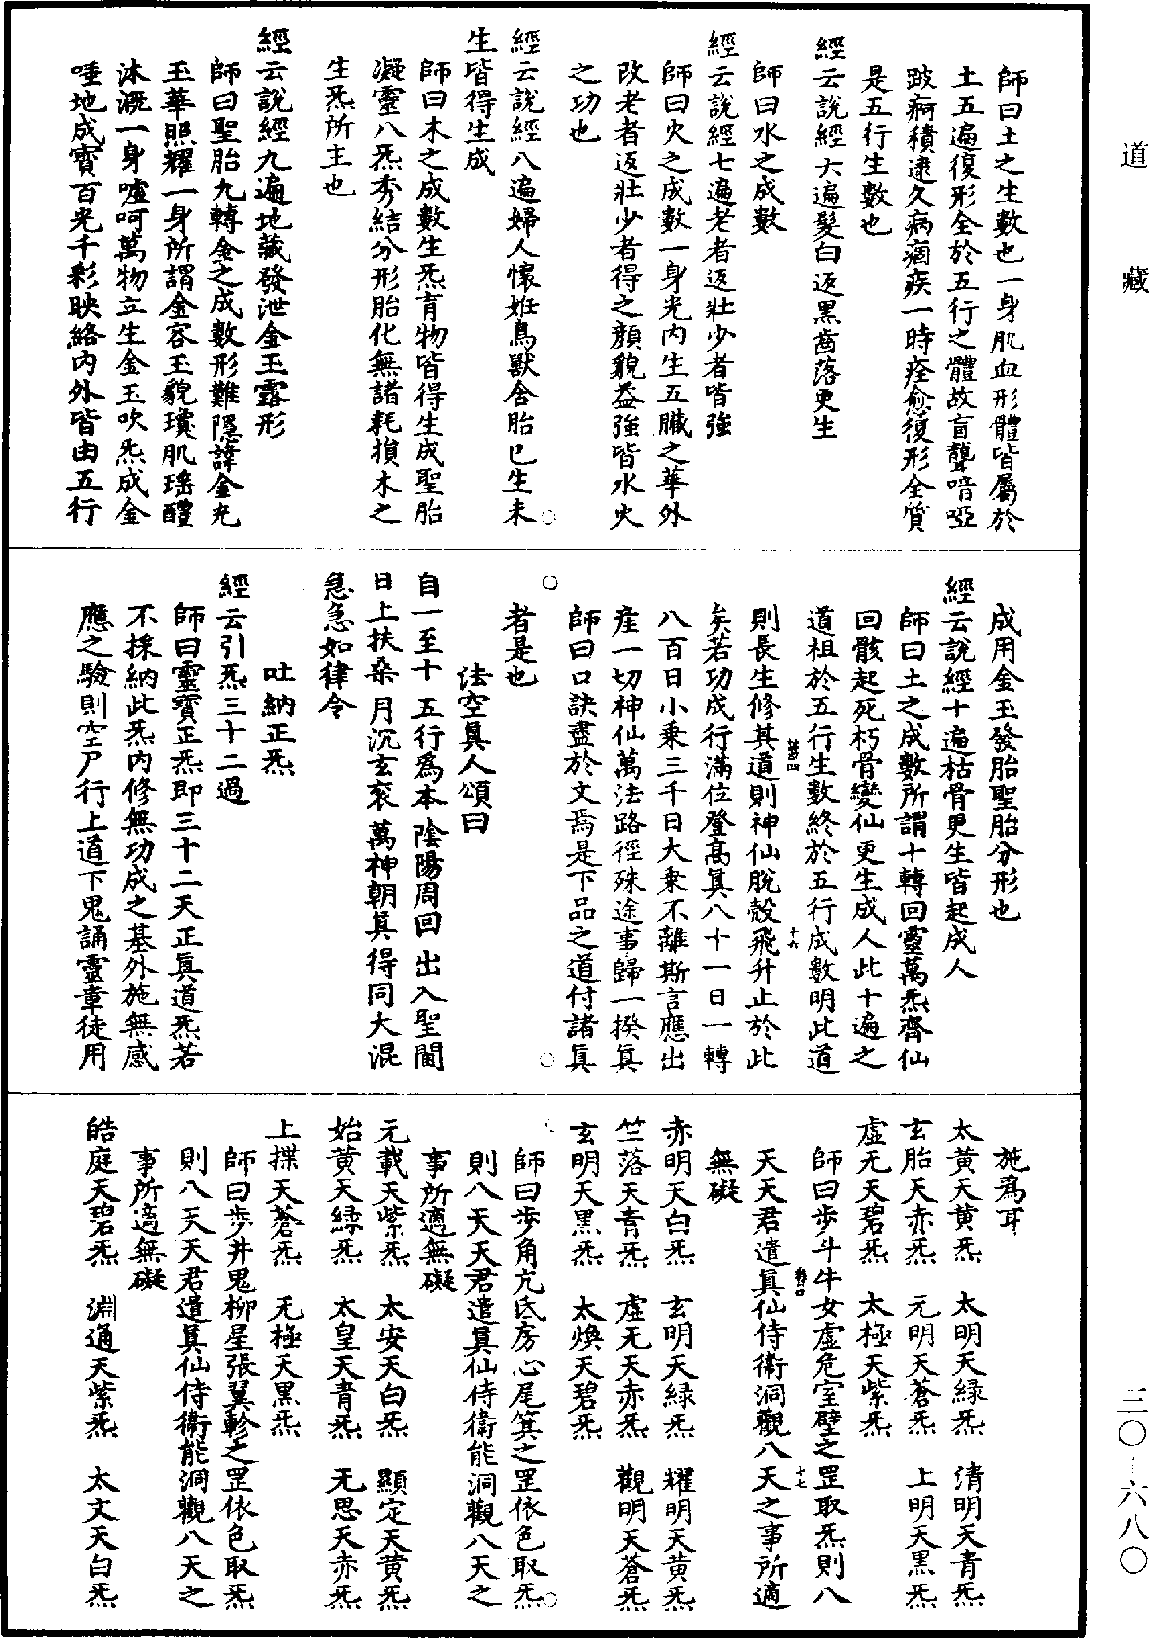 道藏
師曰土之生數也一身肌血形體皆屬於
土五遍復形全於五行之體故盲聾喑啞
跛痾積逮久病痼疾一時痊愈復形全質
是五行生數也
經云說經六遍髮白返黑齒落更生
師曰水之成數
經云說經七遍老者返壯少者皆強
師曰火之成數一身光内生五臟之華外
改老者返壯少者得之顏貌益強皆水火
之功也
經云說經八遍婦人懷姙鳥獸含胎已生未
生皆得生成
師曰木之成數生炁育物皆得生成聖胎
凝靈八炁秀結分形胎化無諸耗損木之
生炁所主也
經云說經九遍地藏發泄金玉露形
師曰聖胎九轉金之成數形難隱諱金光
玉華照耀一身所謂金容玉貌瓊肌瑶醴
沐溉一身噓呵萬物立生金玉吹炁成金
唾地成寶百光千彩映絡内外皆由五行
成用金玉發胎聖胎分形也
經云說經十遍枯骨更生皆起成人
師曰土之成數所謂十轉回靈萬炁齊仙
回骸起死朽骨變仙更生成人此十遍之
道祖於五行生數終於五行成數明此道
則長生修其道則神仙脫殼飛升止於此
矣若功成行滿位登高眞八十一日一轉
八百日小乘三千日大乘不離斯言應出
產一切神仙萬法路徑殊途事歸一揆眞
師曰口訣盡於文焉是下品之道付諸眞
者是也
法空眞人頌曰
自一至十 五行爲本 陰陽周回 出入聖閫
日上扶桑 月沉玄衮 萬神朝眞 得同大混
急急如律令
吐納正炁
經云引炁三十二過
師曰靈寶正炁即三十二天正眞道炁若
不採納此炁内修無功成之基外施無感
應之驗則空尸行上道下鬼誦靈章徒用
施爲耳
太黄天黄炁 太明天緑炁 清明天青炁
玄胎天赤炁 元明天蒼炁 上明天黑炁
虛无天碧炁 太極天紫炁
師曰步斗牛女虛危室壁之罡取炁則八
天天君遣眞仙侍衛洞觀八天之事所適
無礙
赤明天白炁 玄明天緑炁 耀明天黄炁
竺落天青炁 虛无天赤炁 觀明天蒼炁
玄明天黑炁 太煥天碧炁
師曰步角亢氐房心尾箕之罡依色取炁
則八天天君遣眞仙侍衛能洞觀八天之
事所適無礙
元載天紫炁 太安天白炁 顯定天黄炁
始黄天緑炁 太皇天青炁 无思天赤炁
上揲天蒼炁 无極天黑炁
師曰步井鬼柳星張翼軫之罡依色取炁
則八天天君遣眞仙侍衛能洞觀八天之
事所適無礙
皓庭天碧炁 淵通天紫炁 太文天白炁
十六
十七
三〇-六八〇